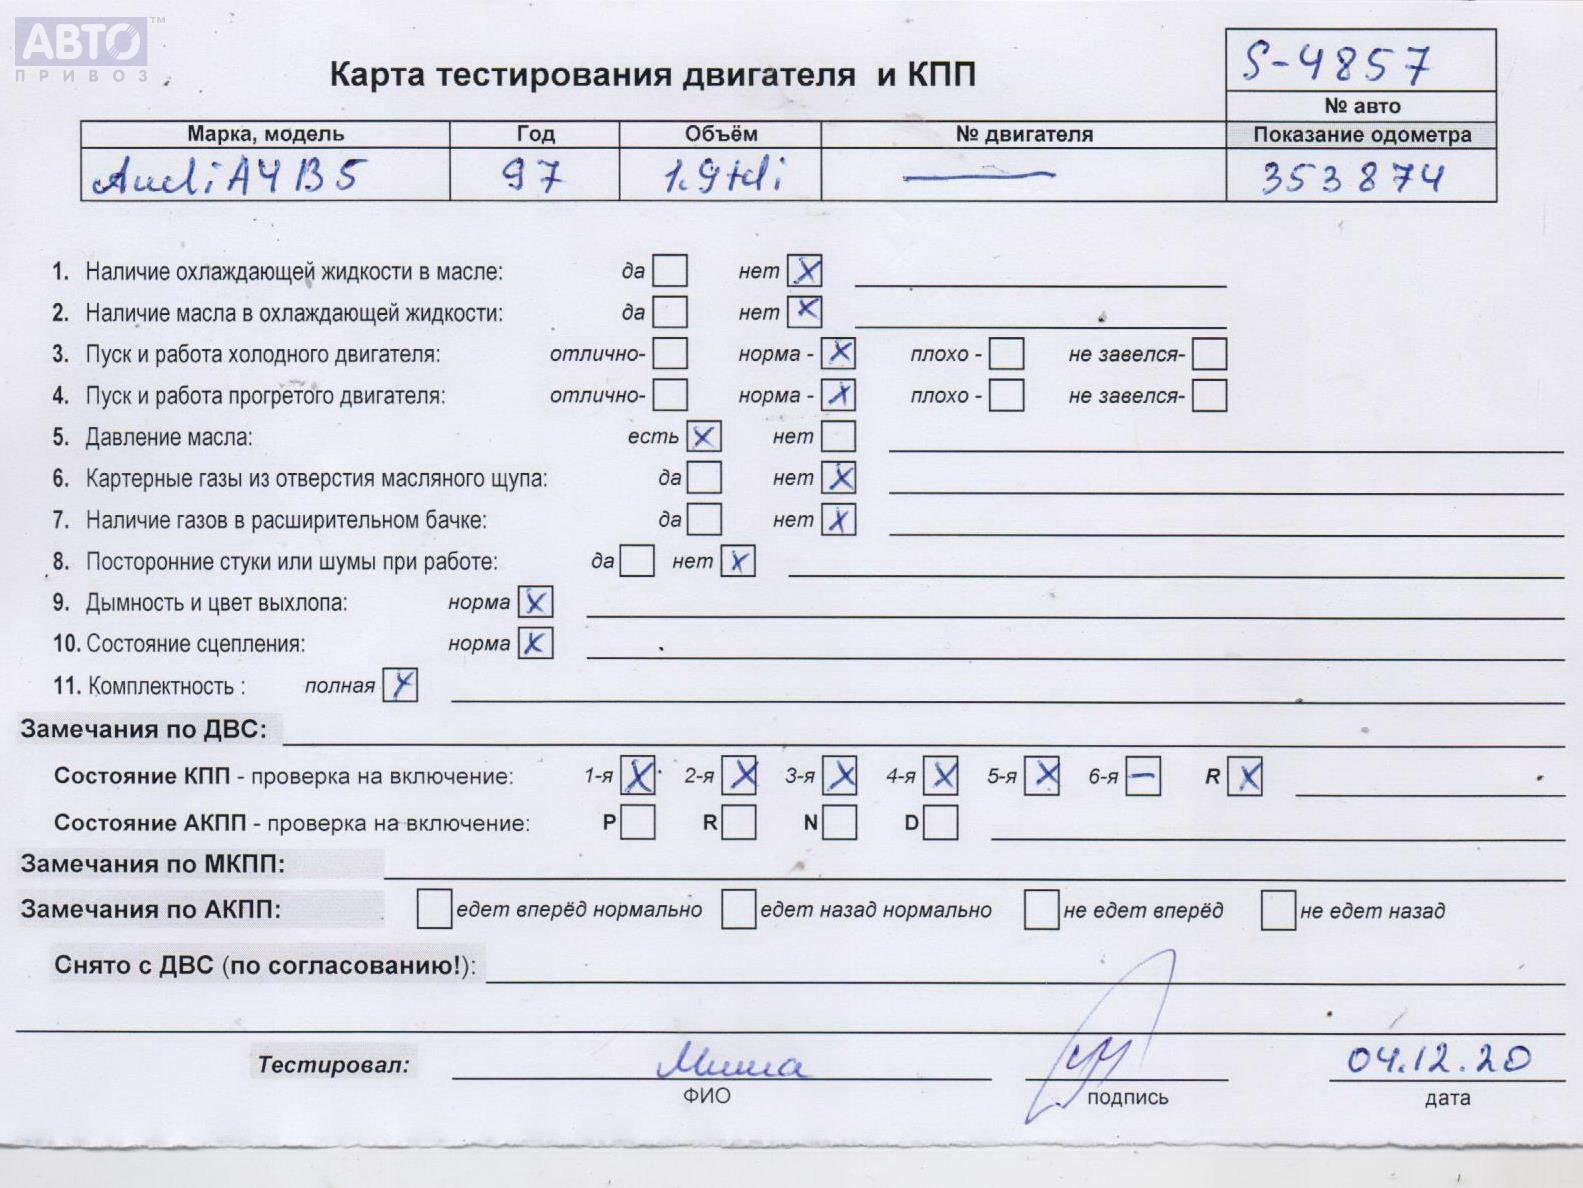 АВТО™
ПРИВОЗ
Карта тестирования двигателя и КПП
S-4857
№ авто
Марка, модель Год Объём № двигателя Показание одометра
Audi A4 B5 97 1.9tdi — 353874
1. Наличие охлаждающей жидкости в масле: да нет X
2. Наличие масла в охлаждающей жидкости: да нет X
3. Пуск и работа холодного двигателя: отлично- норма - X плохо - не завелся-
4. Пуск и работа прогретого двигателя: отлично- норма - X плохо - не завелся-
5. Давление масла: есть X нет
6. Картерные газы из отверстия масляного щупа: да нет X
7. Наличие газов в расширительном бачке: да нет X
8. Посторонние стуки или шумы при работе: да нет X
9. Дымность и цвет выхлопа: норма X
10. Состояние сцепления: норма X
11. Комплектность : полная X
Замечания по ДВС:
Состояние КПП - проверка на включение: 1-я X 2-я X 3-я X 4-я X 5-я X 6-я — R X
Состояние АКПП - проверка на включение: P R N D
Замечания по МКПП:
Замечания по АКПП: едет вперёд нормально едет назад нормально не едет вперёд не едет назад
Снято с ДВС (по согласованию!):
Тестировал: Миша 04.12.20
ФИО подпись дата